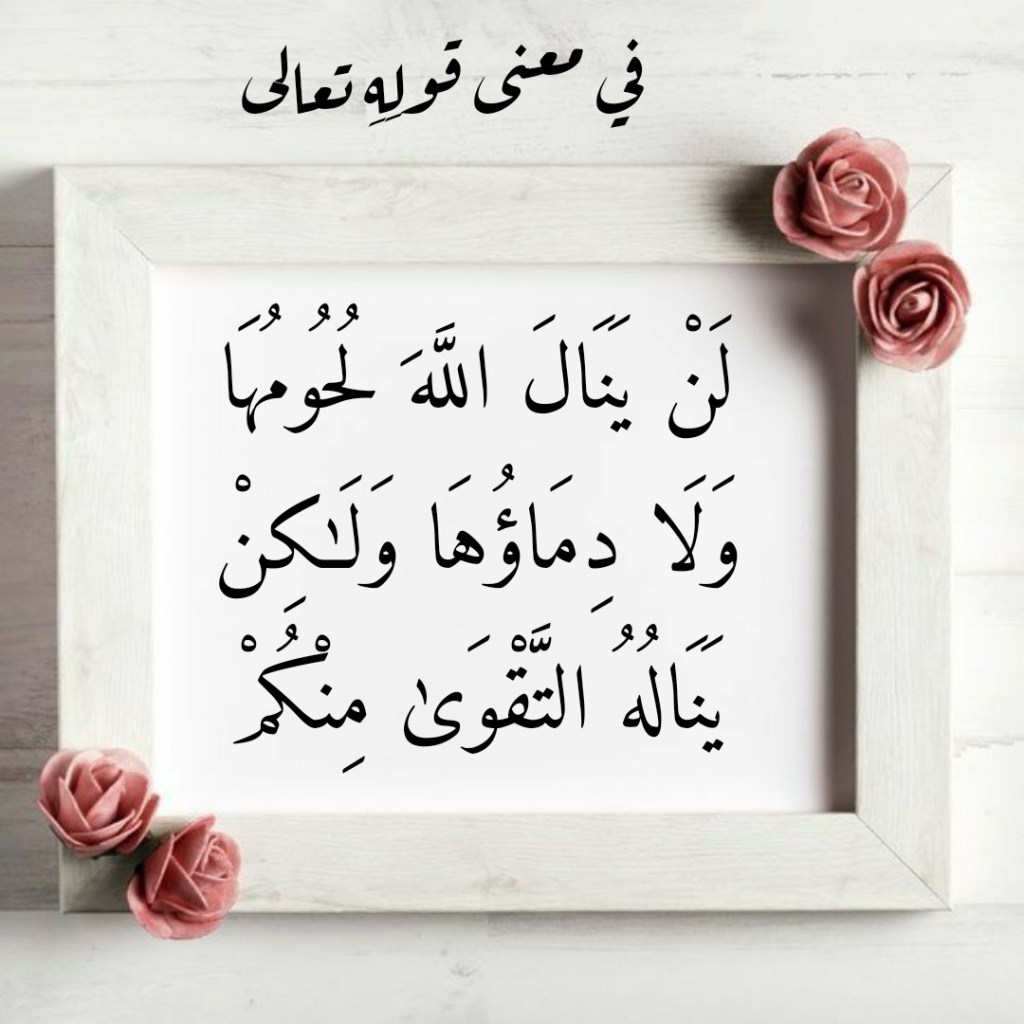 في معنى قولِهِ تعالى
لَنْ يَنَالَ اللَّهَ لُحُومُهَا
وَلَا دِمَاؤُهَا وَلَٰكِنْ
يَنَالُهُ التَّقْوَىٰ مِنْكُمْ